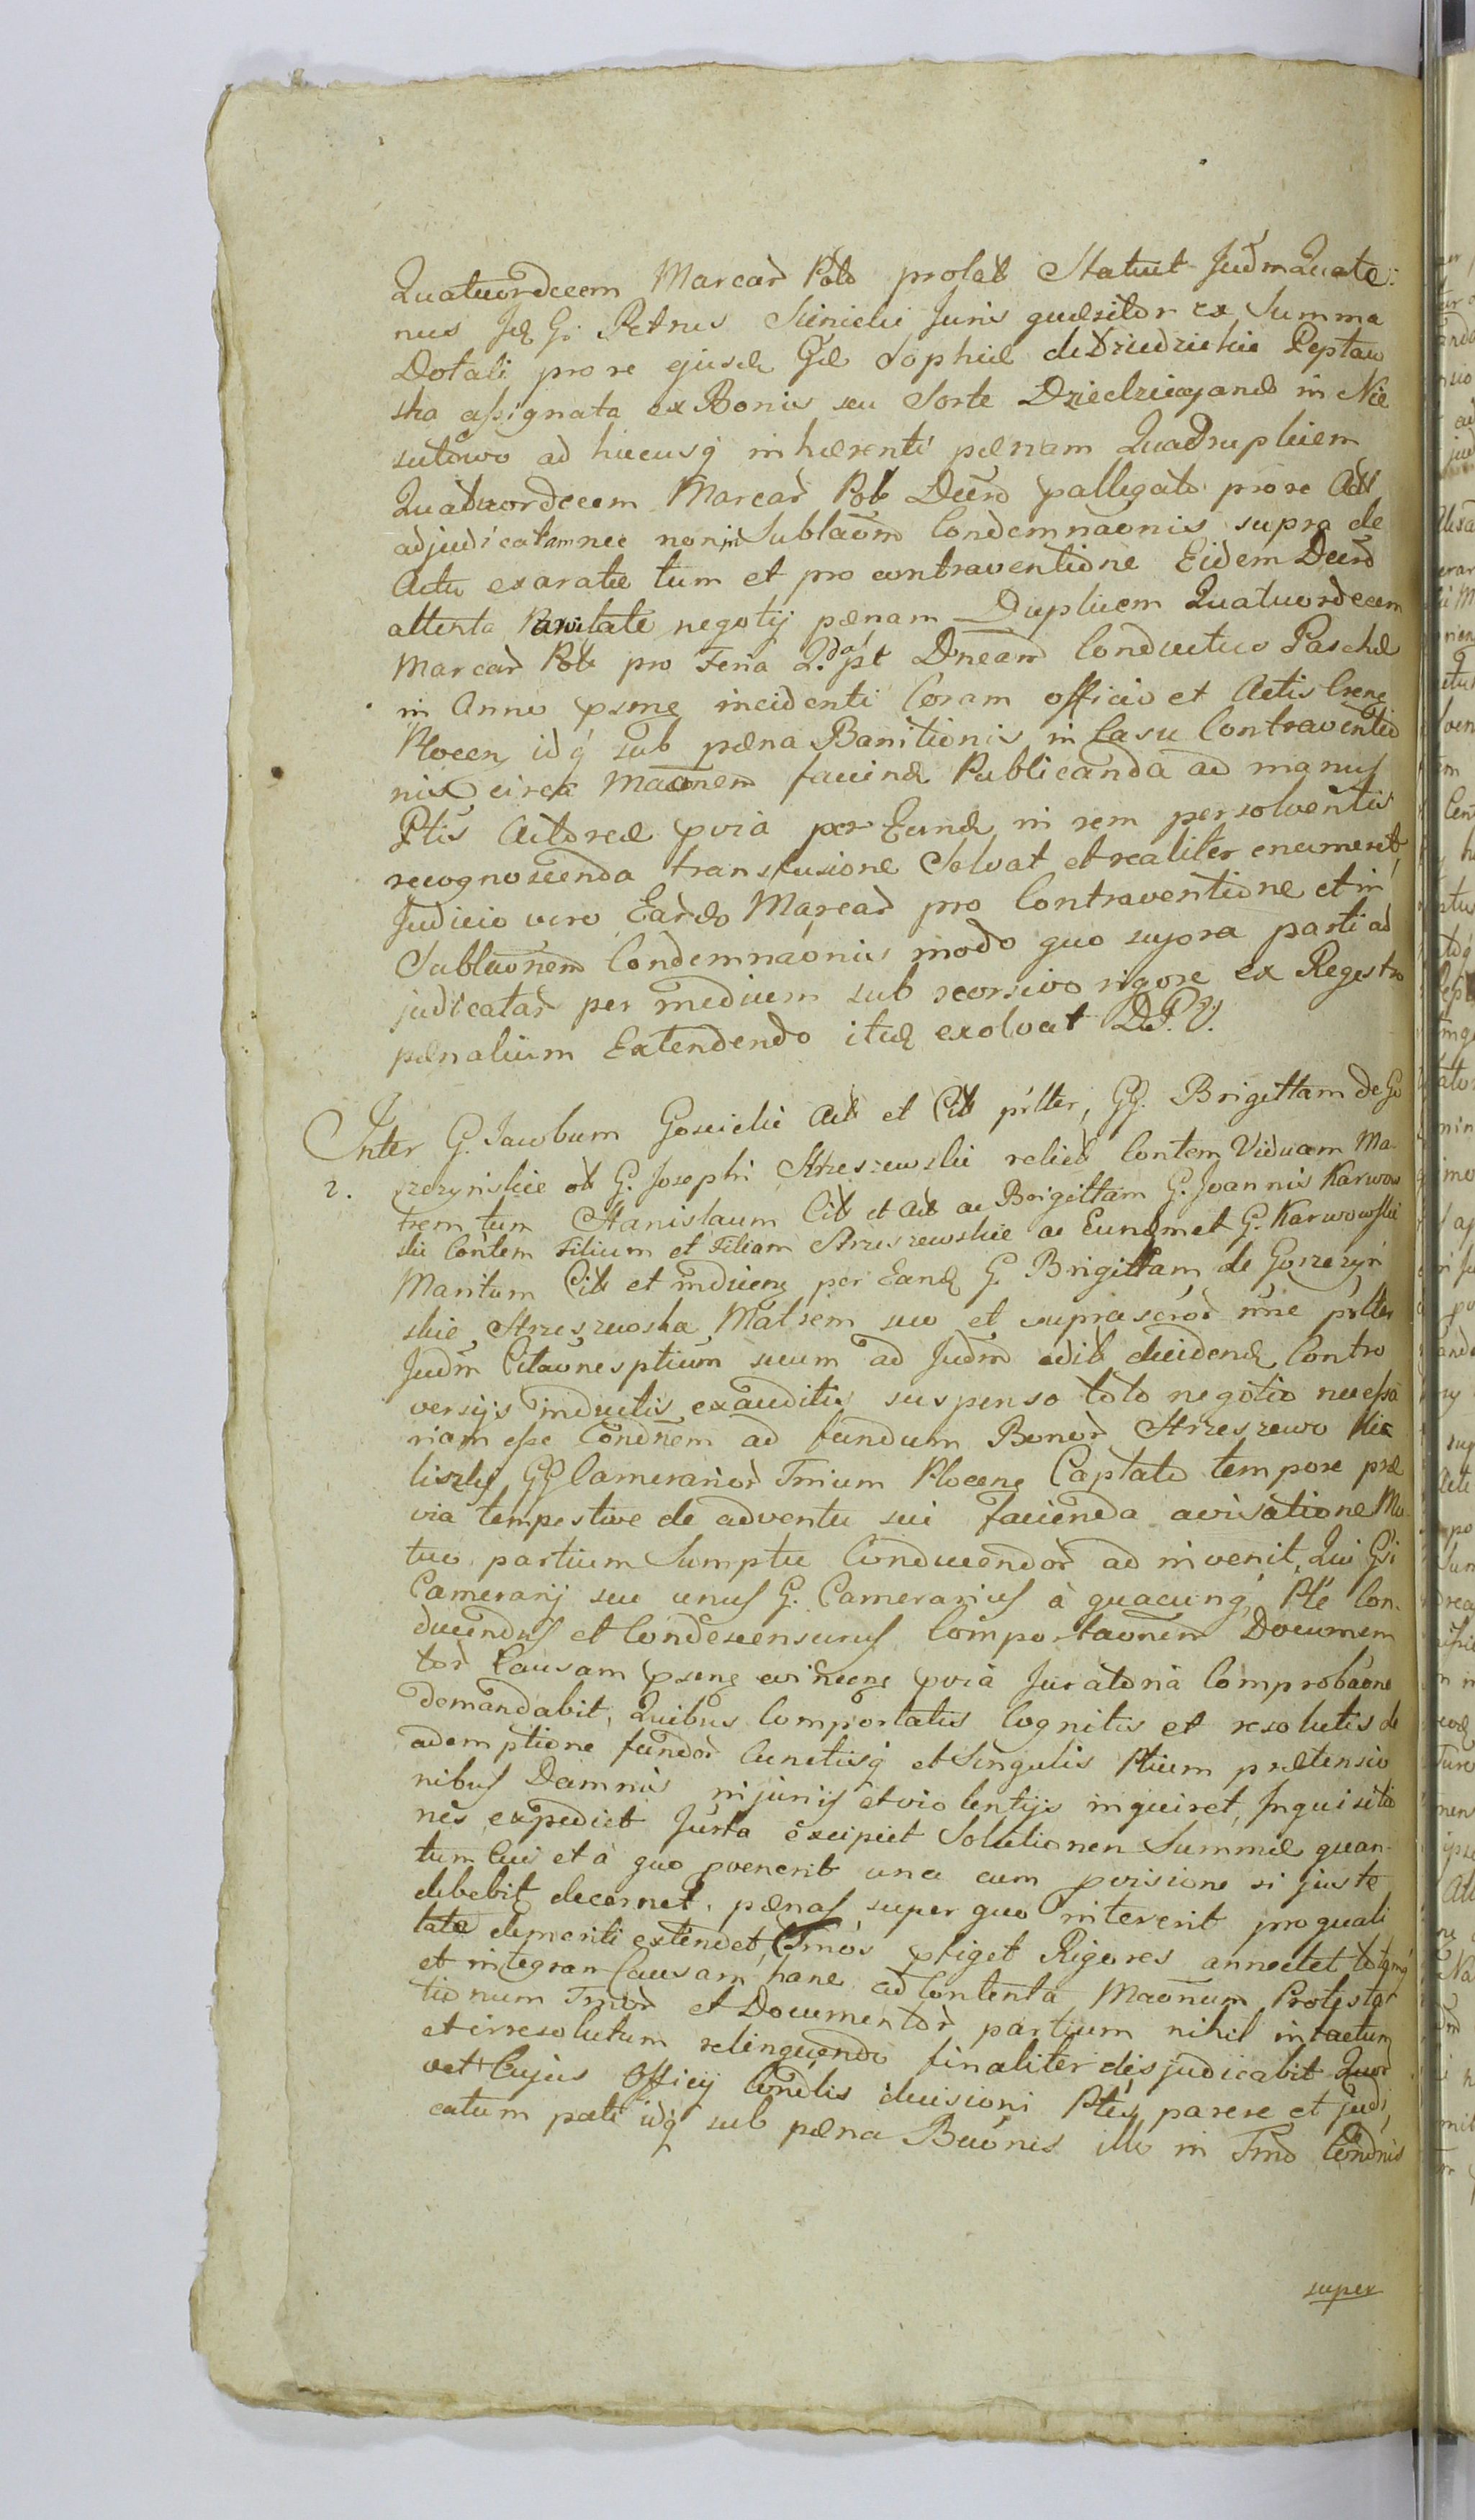 Quatuordecem Marcar̃ Polo prolat̃ Statuit Judm Quate:
nus Id G. Petrus Sieniclii Juris quæsitor ex Summa
Dotali pro re ejusd Gæ Sophiæ de Dziedzickie Peptaw
ska assignata ex Bonis seu Sorte Dziedzicz in Nie
sutowo ad hucusq inhærenti pænam Quadruplicem
Quatuordecem Marcar̃ Pol Decro pallegato pro re Act
adjudicatam nec non in Sublaõm Condemnaõnis supra de
Actu exaratæ tum et pro contraventione Eidem Decro
attenta Pavitate negotij pænam Duplicem Quatuordecem
Marcar̃ Pol pro Feria 2da pt Dneam Conductus Paschæ
in Anno psmg incidenti Coram officio et Actis Crens
Plocen idq sub pæna Banitionis in Casu Contraventio
nis circa Maõnem faciend Publicanda ad manus
Ptis Actoreæ pvia per Eund in rem persolventis
recognoscenda transfusione Solvat et realiter enumeret,
Judicio vero Eardo Marcar̃ pro Contraventione et in
Sublaõnem Condemnaõnis modo quo supra parti ad
judicatar̃ per medium sub recursivo rigore ex Regestro
pænalium Extendendo itid exolvat D.P.V.
Inter G. Jacobum Gosiclii Act et Cit pŕlter, GG. Brigittam de Go
2. rzezynskie olt G. Josephi Strzeszewski relict Contem Viduam Ma-
trem tum Stanislaum Cit et Act ac Brigittam G. Joannis Karwow
ski Contem Filium et Filiam Strzeszewskie ac Eundmet G. Karwowski
Maritum Cit et inducens per Eand G. Brigittam de Gorzezyn
skie Strzeszewska Matrem suo et suprascrod nne pŕlter
Judm Citaõnes ptium suum ad Judm adit decidend Contro
versijs inductis exauditis suspenso toto negotio necessa
riam esse Condnem ad fundum Bonor̃ Strzeszewo Kie
liszki GG Camerarior̃ Trrium Plocens Captato tempore præ
via tempestive de adventu sui facienda avisatione Mu
tuo partium Sumptu Conducendor̃ ad invenit, Qui Gsi
Camerarij seu unus G. Camerarius à quacunq Pte Con-
ducendus et Condescensurus Comportaõnem Documen
tor̃ Causam psens evincens pvia Juratoria Comprobaõne
demandabit, Quibus Comportatis Cognitis et resolutis de
ademptione fundor̃ Cunctisq et Singulis Ptium prætensio
nibus Damnis injurijs et violentijs inquiret, Inquisitio
nes expediet Jurta excipiet Solutionem Summæ quan-
tum Cui et à quo pvenerit una cum pvisione si juste
debebit decernet, pænas super quo interit pro quali
tate demeriti extendet, Tmos pfiget Rigores annectet totamq
et integram Causam hanc ad Contenta Maõnum Protesta
tionum Tmor̃ et Documentor̃ partium nihil intactum
et irresolutum relinquendo finaliter disjudicabit Quor̃
vel Cujus Officij Condlis decisioni Ptes parere et judi
catum pati idq sub pæna Baõnis illo in Tmo Condnis
super